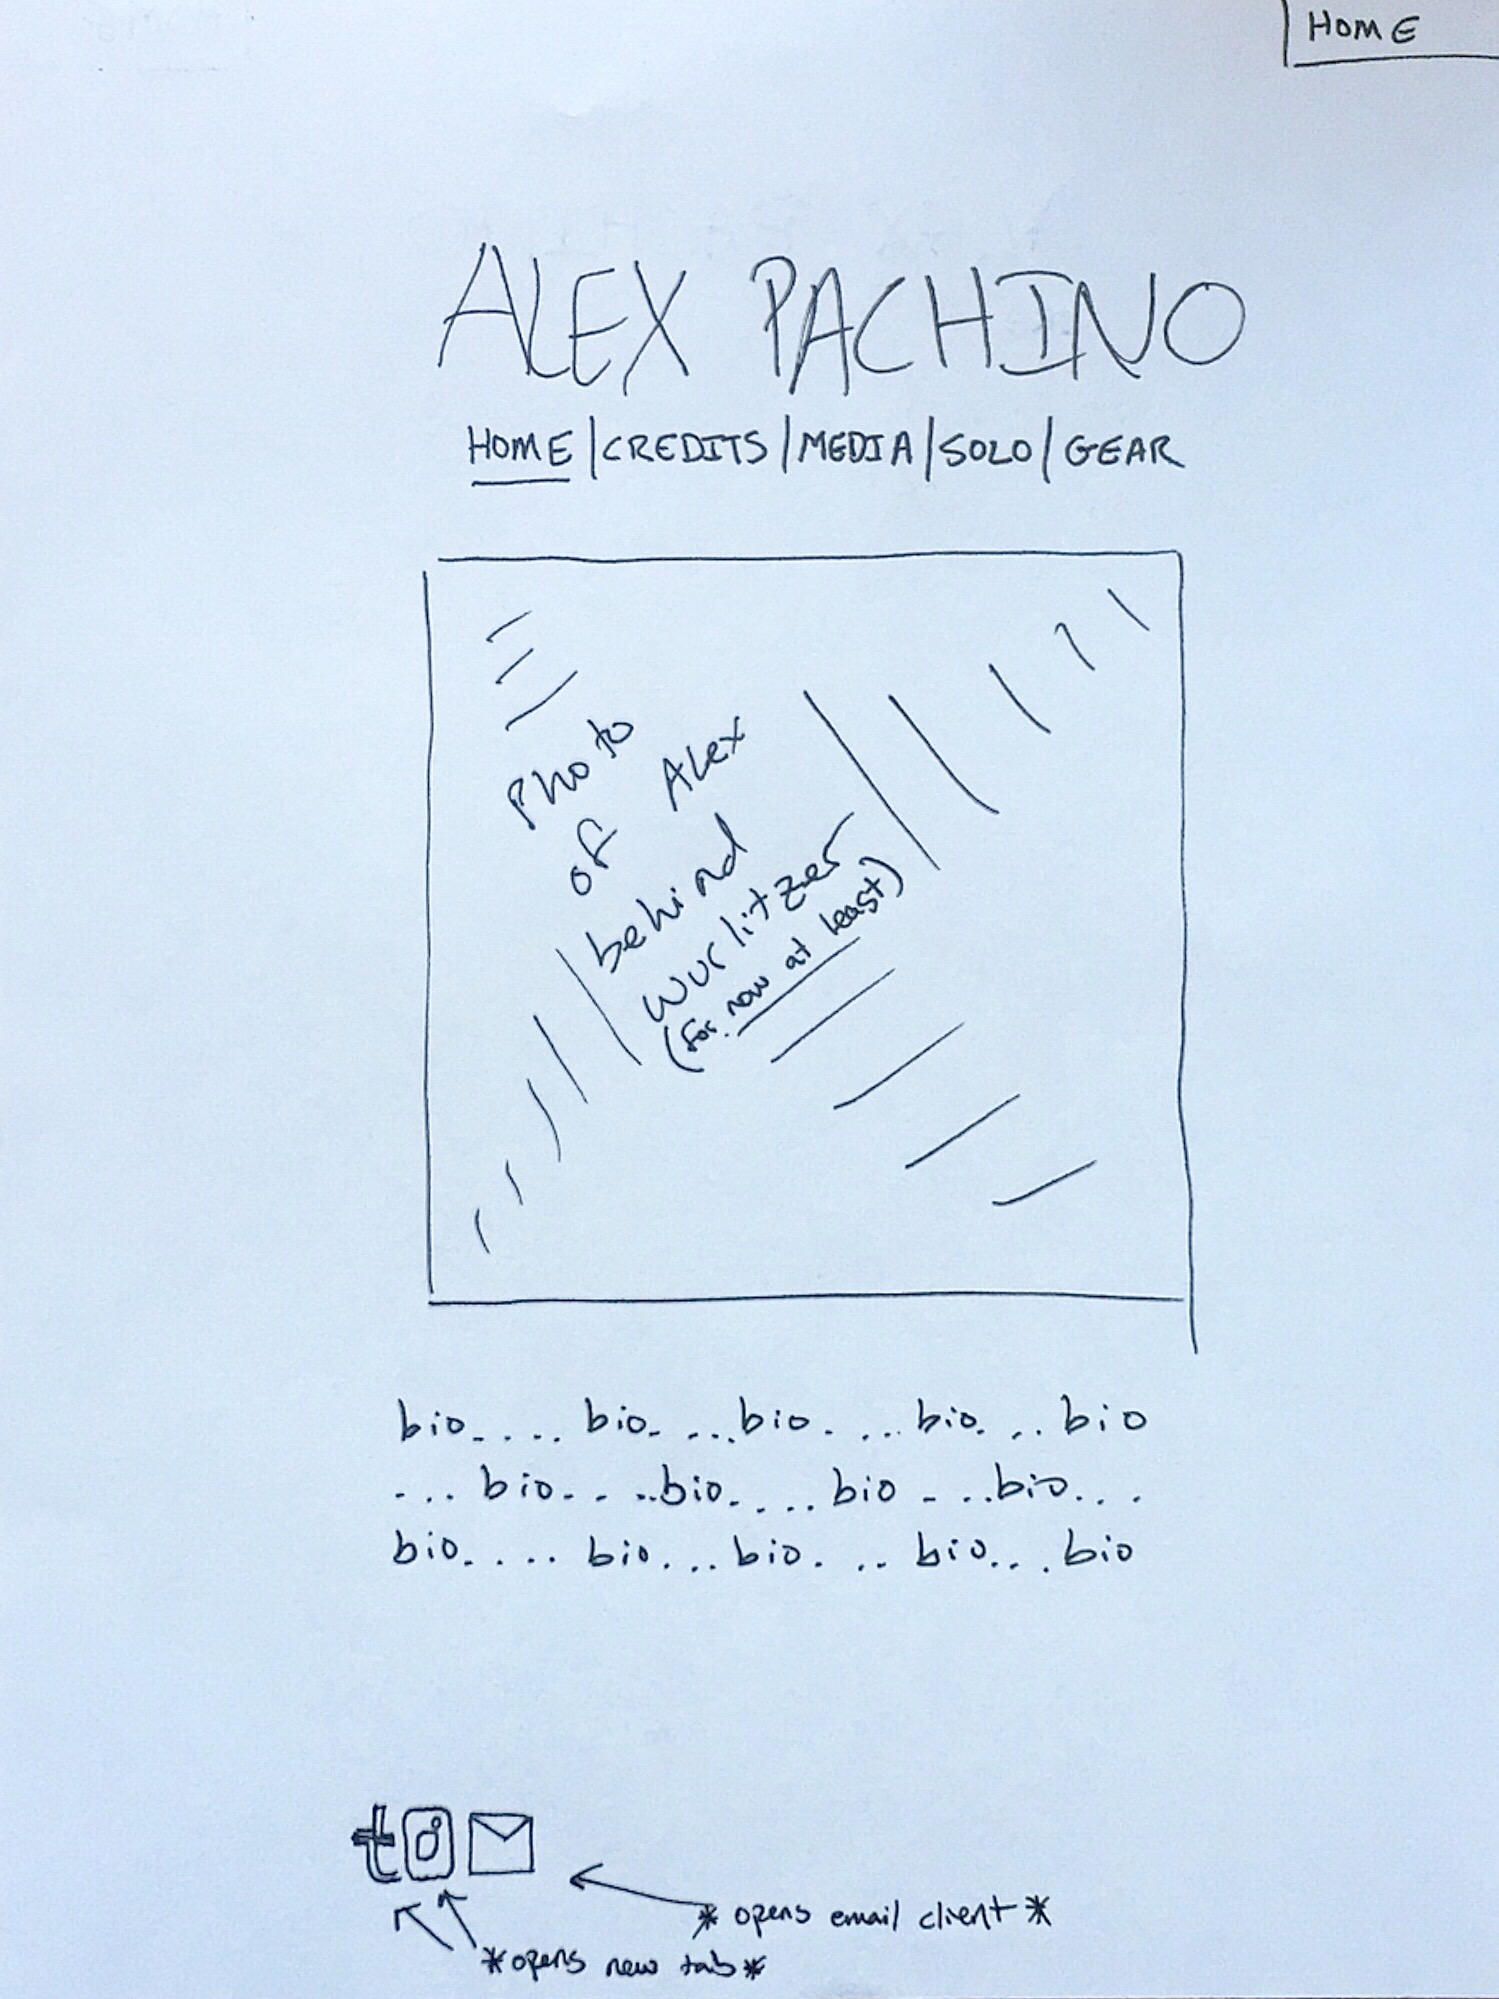 HOME
ALEX PACHINO
HOME | CREDITS | MEDIA | SOLO | GEAR
Photo
of Alex
behind
Wurlitzer
(for now at least)
bio..... bio. ...bio. ... bio. .. bio
... bio. . ...bio. ... bio . ..bio...
bio. .... bio... bio. .. bio... bio
t
*opens email client*
*opens new tab*